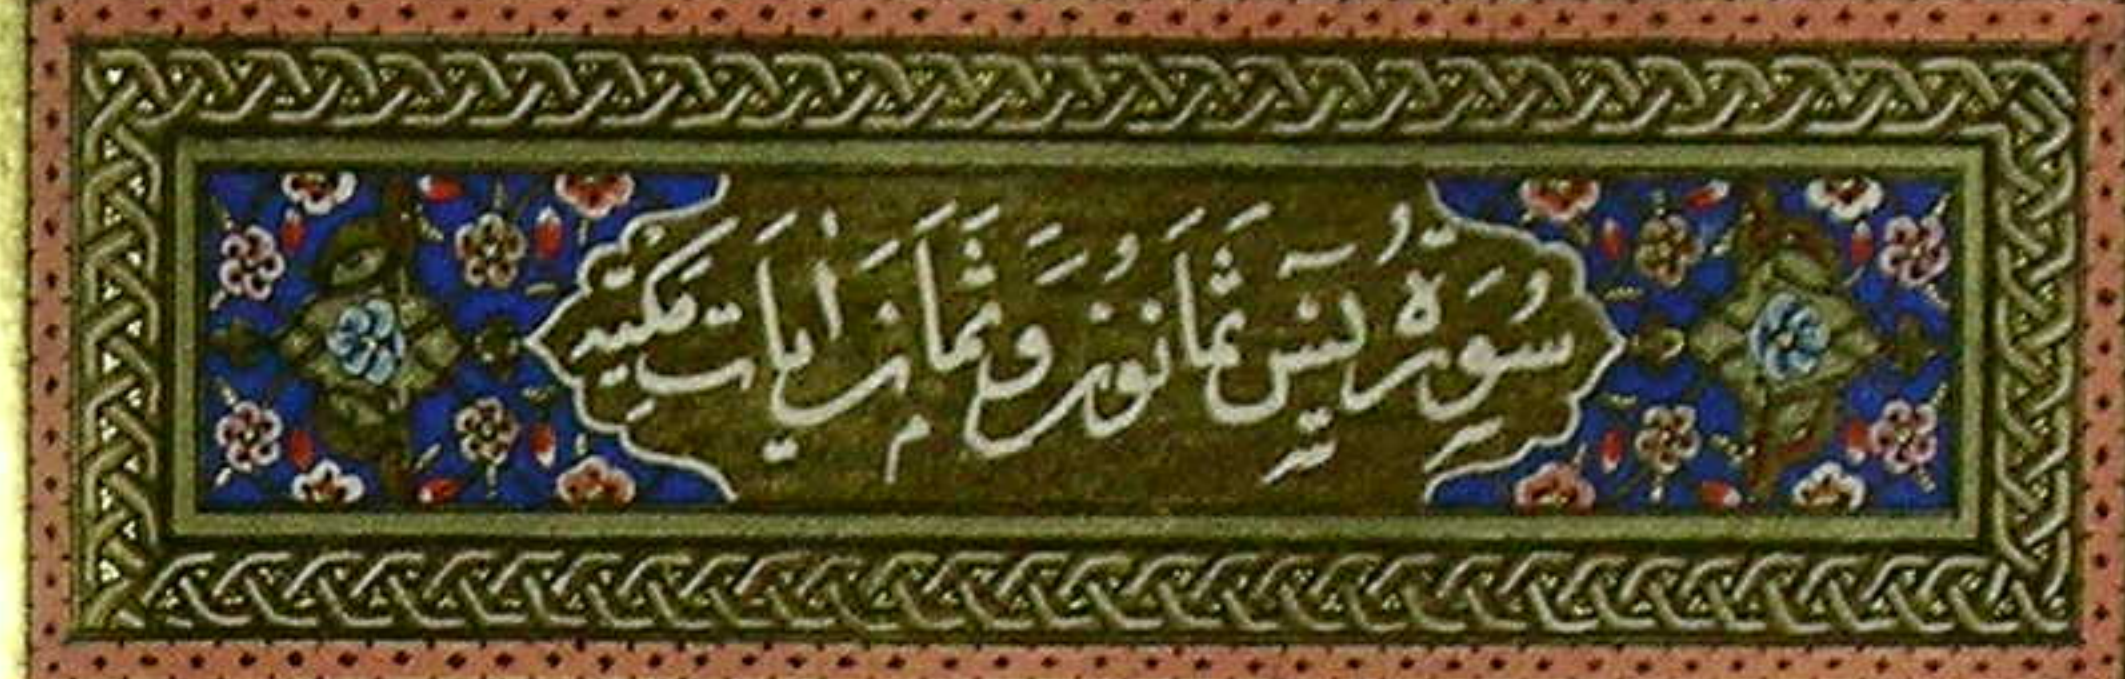 سُورَةُ يٰسٓ ثَمَانُونَ وَثَمَانَ اٰيَاتٍ مَكِّيَّة